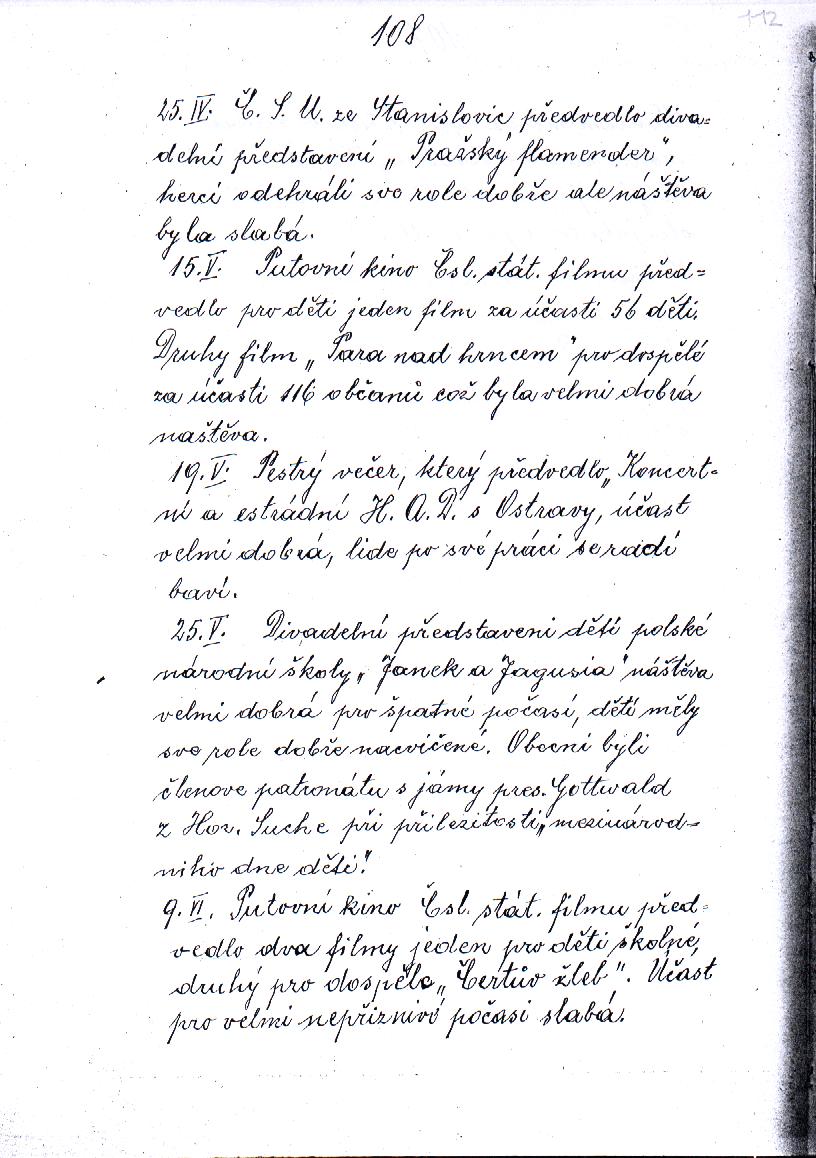 108
112
25.IV. Č. S. M. ze Stanislovic předvedlo diva=
delní představení „Pražský flamender",
herci odehráli sve role dobře ale náštěva
byla slabá.
15.V. Putovní kino Čsl. stát. filmu před=
vedlo pro děti jeden film za účasti 56 děti.
Druhy film „Para nad hrncem" pro dospělé
za účasti 116 občanů což byla velmi dobrá
naštěva.
19.V. Pestrý večer, který předvedlo „Koncert-
ní a estrádní H. A. D. s Ostravy, účast
velmi dobrá, lide po své práci se radí
baví.
25.V. Divadelní představeni dětí polské
národní školy „Janek a Jagusia" náštěva
velmi dobrá pro špatné počasí, dětí měly
sve role dobře nacvíčené. Obecní byli
členove patronátu s jámy pres. Gottwald
z Hor. Suche při přiležitosti „mezinárod-
niho dne dětí!"
9. VI. Putovní kino Čsl. stát. filmu před=
vedlo dva filmy jeden pro děti školné,
druhý pro dospěle „Čertův žleb". Účast
pro velmi nepřiznivé počasi slabá.